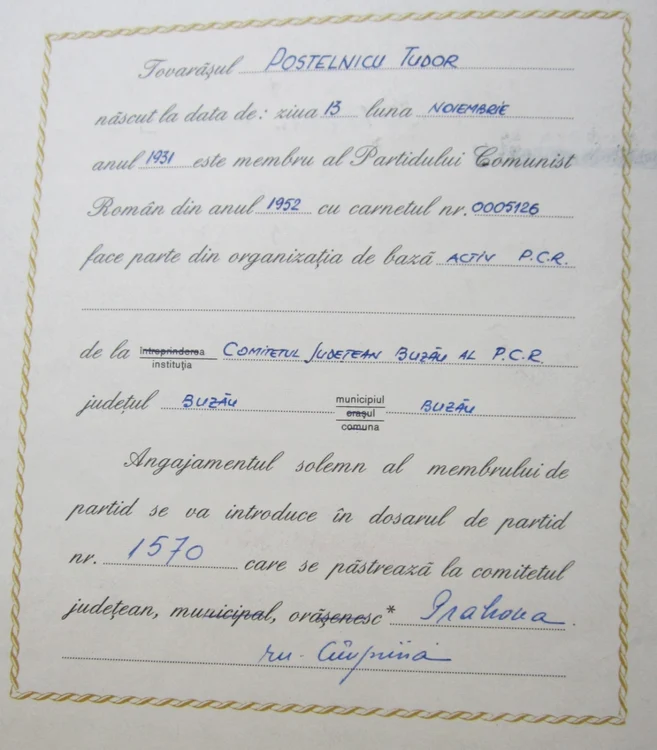 Tovarăşul POSTELNICU TUDOR
născut la data de: ziua 13 luna NOIEMBRIE
anul 1931 este membru al Partidului Comunist
Român din anul 1952 cu carnetul nr. 0005126
face parte din organizaţia de bază ACTIV P.C.R.
de la întreprinderea COMITETUL JUDEŢEAN BUZĂU AL P.C.R.
instituţia
municipiul
judeţul BUZĂU oraşul BUZĂU
comuna
Angajamentul solemn al membrului de
partid se va introduce în dosarul de partid
nr. 1570 care se păstrează la comitetul
judeţean, municipal, orăşenesc* Prahova